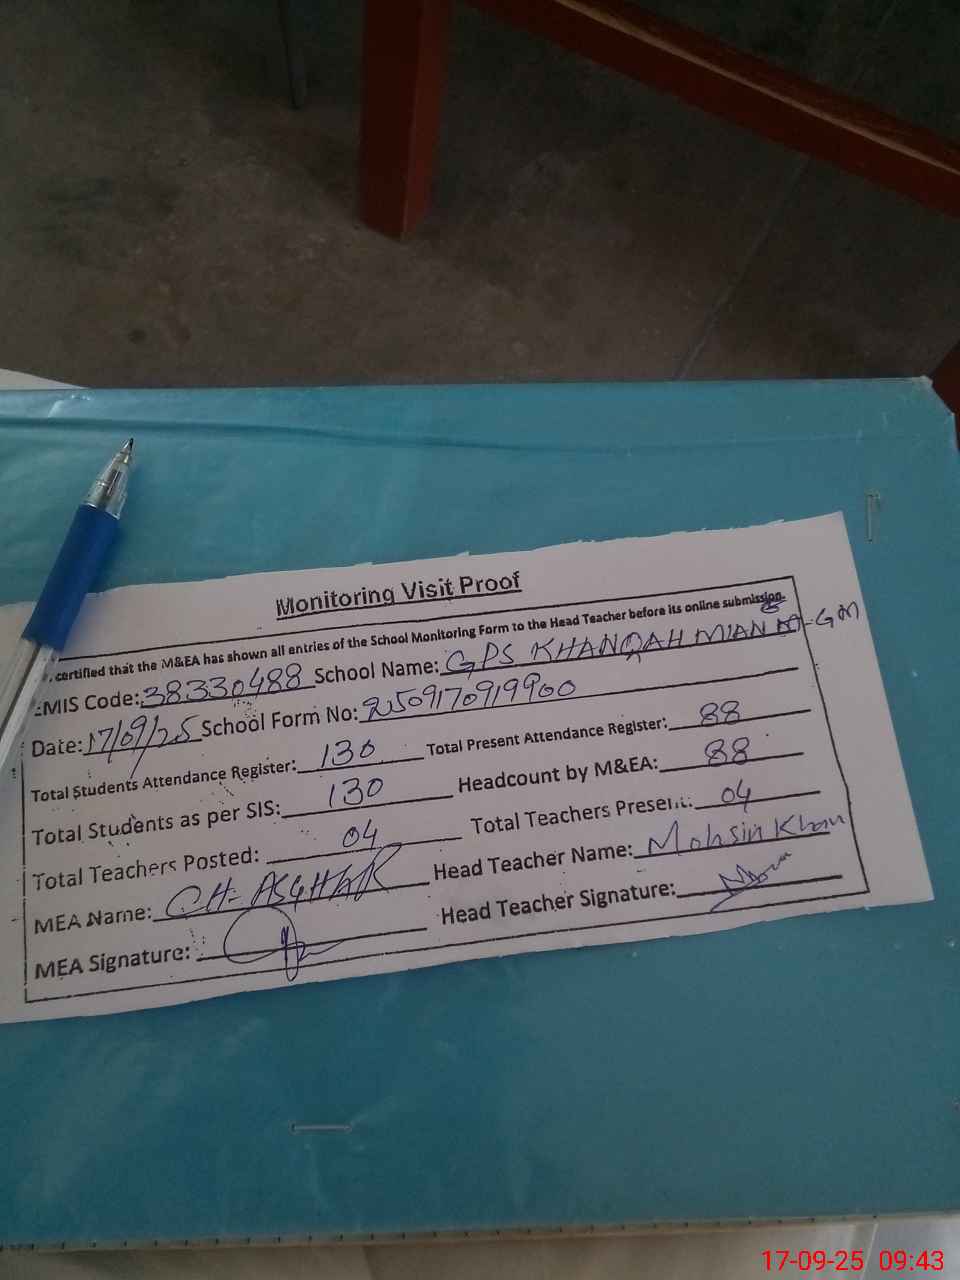 Monitoring Visit Proof
certified that the M&EA has shown all entries of the School Monitoring Form to the Head Teacher before its online submission.
EMIS Code: 38330488 School Name: GPS KHANQAH MIAN
Date: 17/09/25 School Form No: 250917091990
Total Students Attendance Register: 130 Total Present Attendance Register: 88
Total Students as per SIS: 130 Headcount by M&EA: 88
Total Teachers Posted: 04 Total Teachers Present: 04
MEA Name: CH-ASGHAR Head Teacher Name: Mohsin Khan
MEA Signature: Head Teacher Signature:
17-09-25 09:43